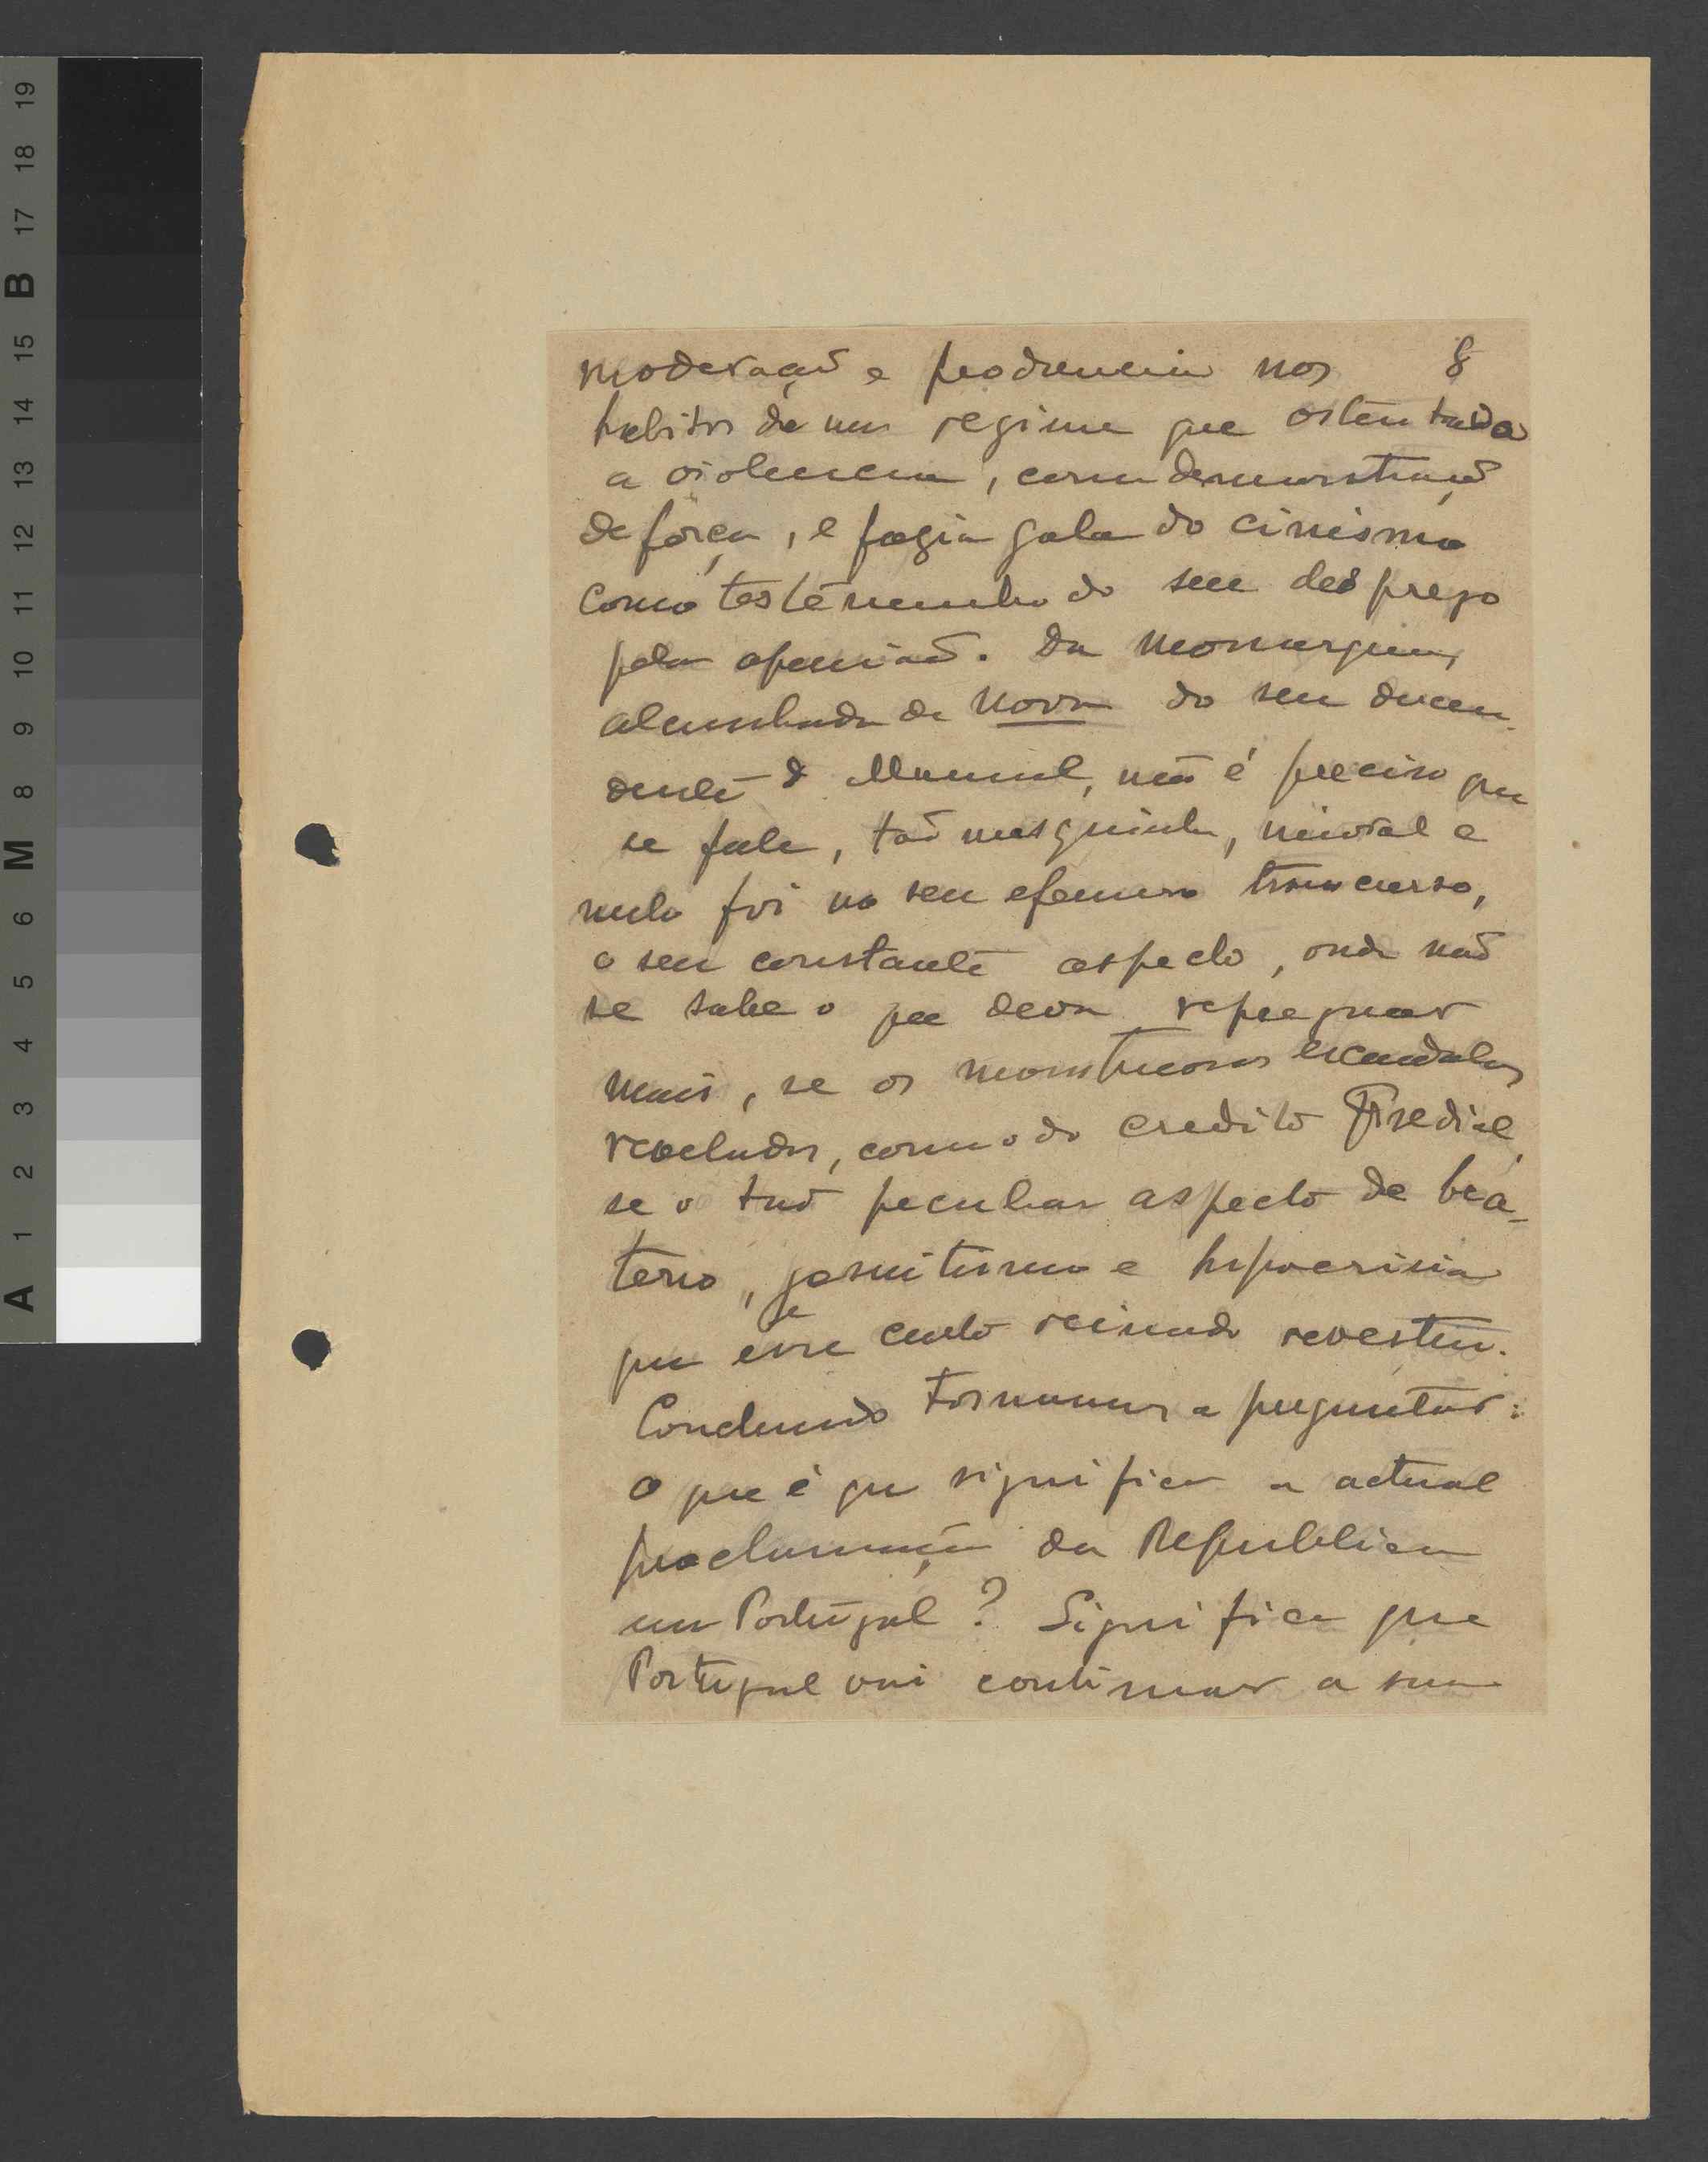 8
moderação e prodencia nos
habitos de um regime que ostentava
a violencia, como demonstração
de força, e fazia gala do cinismo
como testemunho do seu desprezo
pela openião. Da monarquia,
alcunhada de nova do seu
D. Manuel, não é preciso que
se fale, tão mesquinho, e
nulo foi no seu efemero transcurso,
o seu constante aspecto, onde não
se sabe o que deva repugnar
mais, se os monstruosos escandalos
revelados, como o do credito Predial,
se o tão peculiar aspecto de bea-
terio, jesuitismo e hipocrisia
de que esse curto reinado revestiu.
Concluindo tornamos a preguntar:
O que é que significa a actual
proclamação da Republica
em Portugal? Significa que
Portugal vai continuar a sua